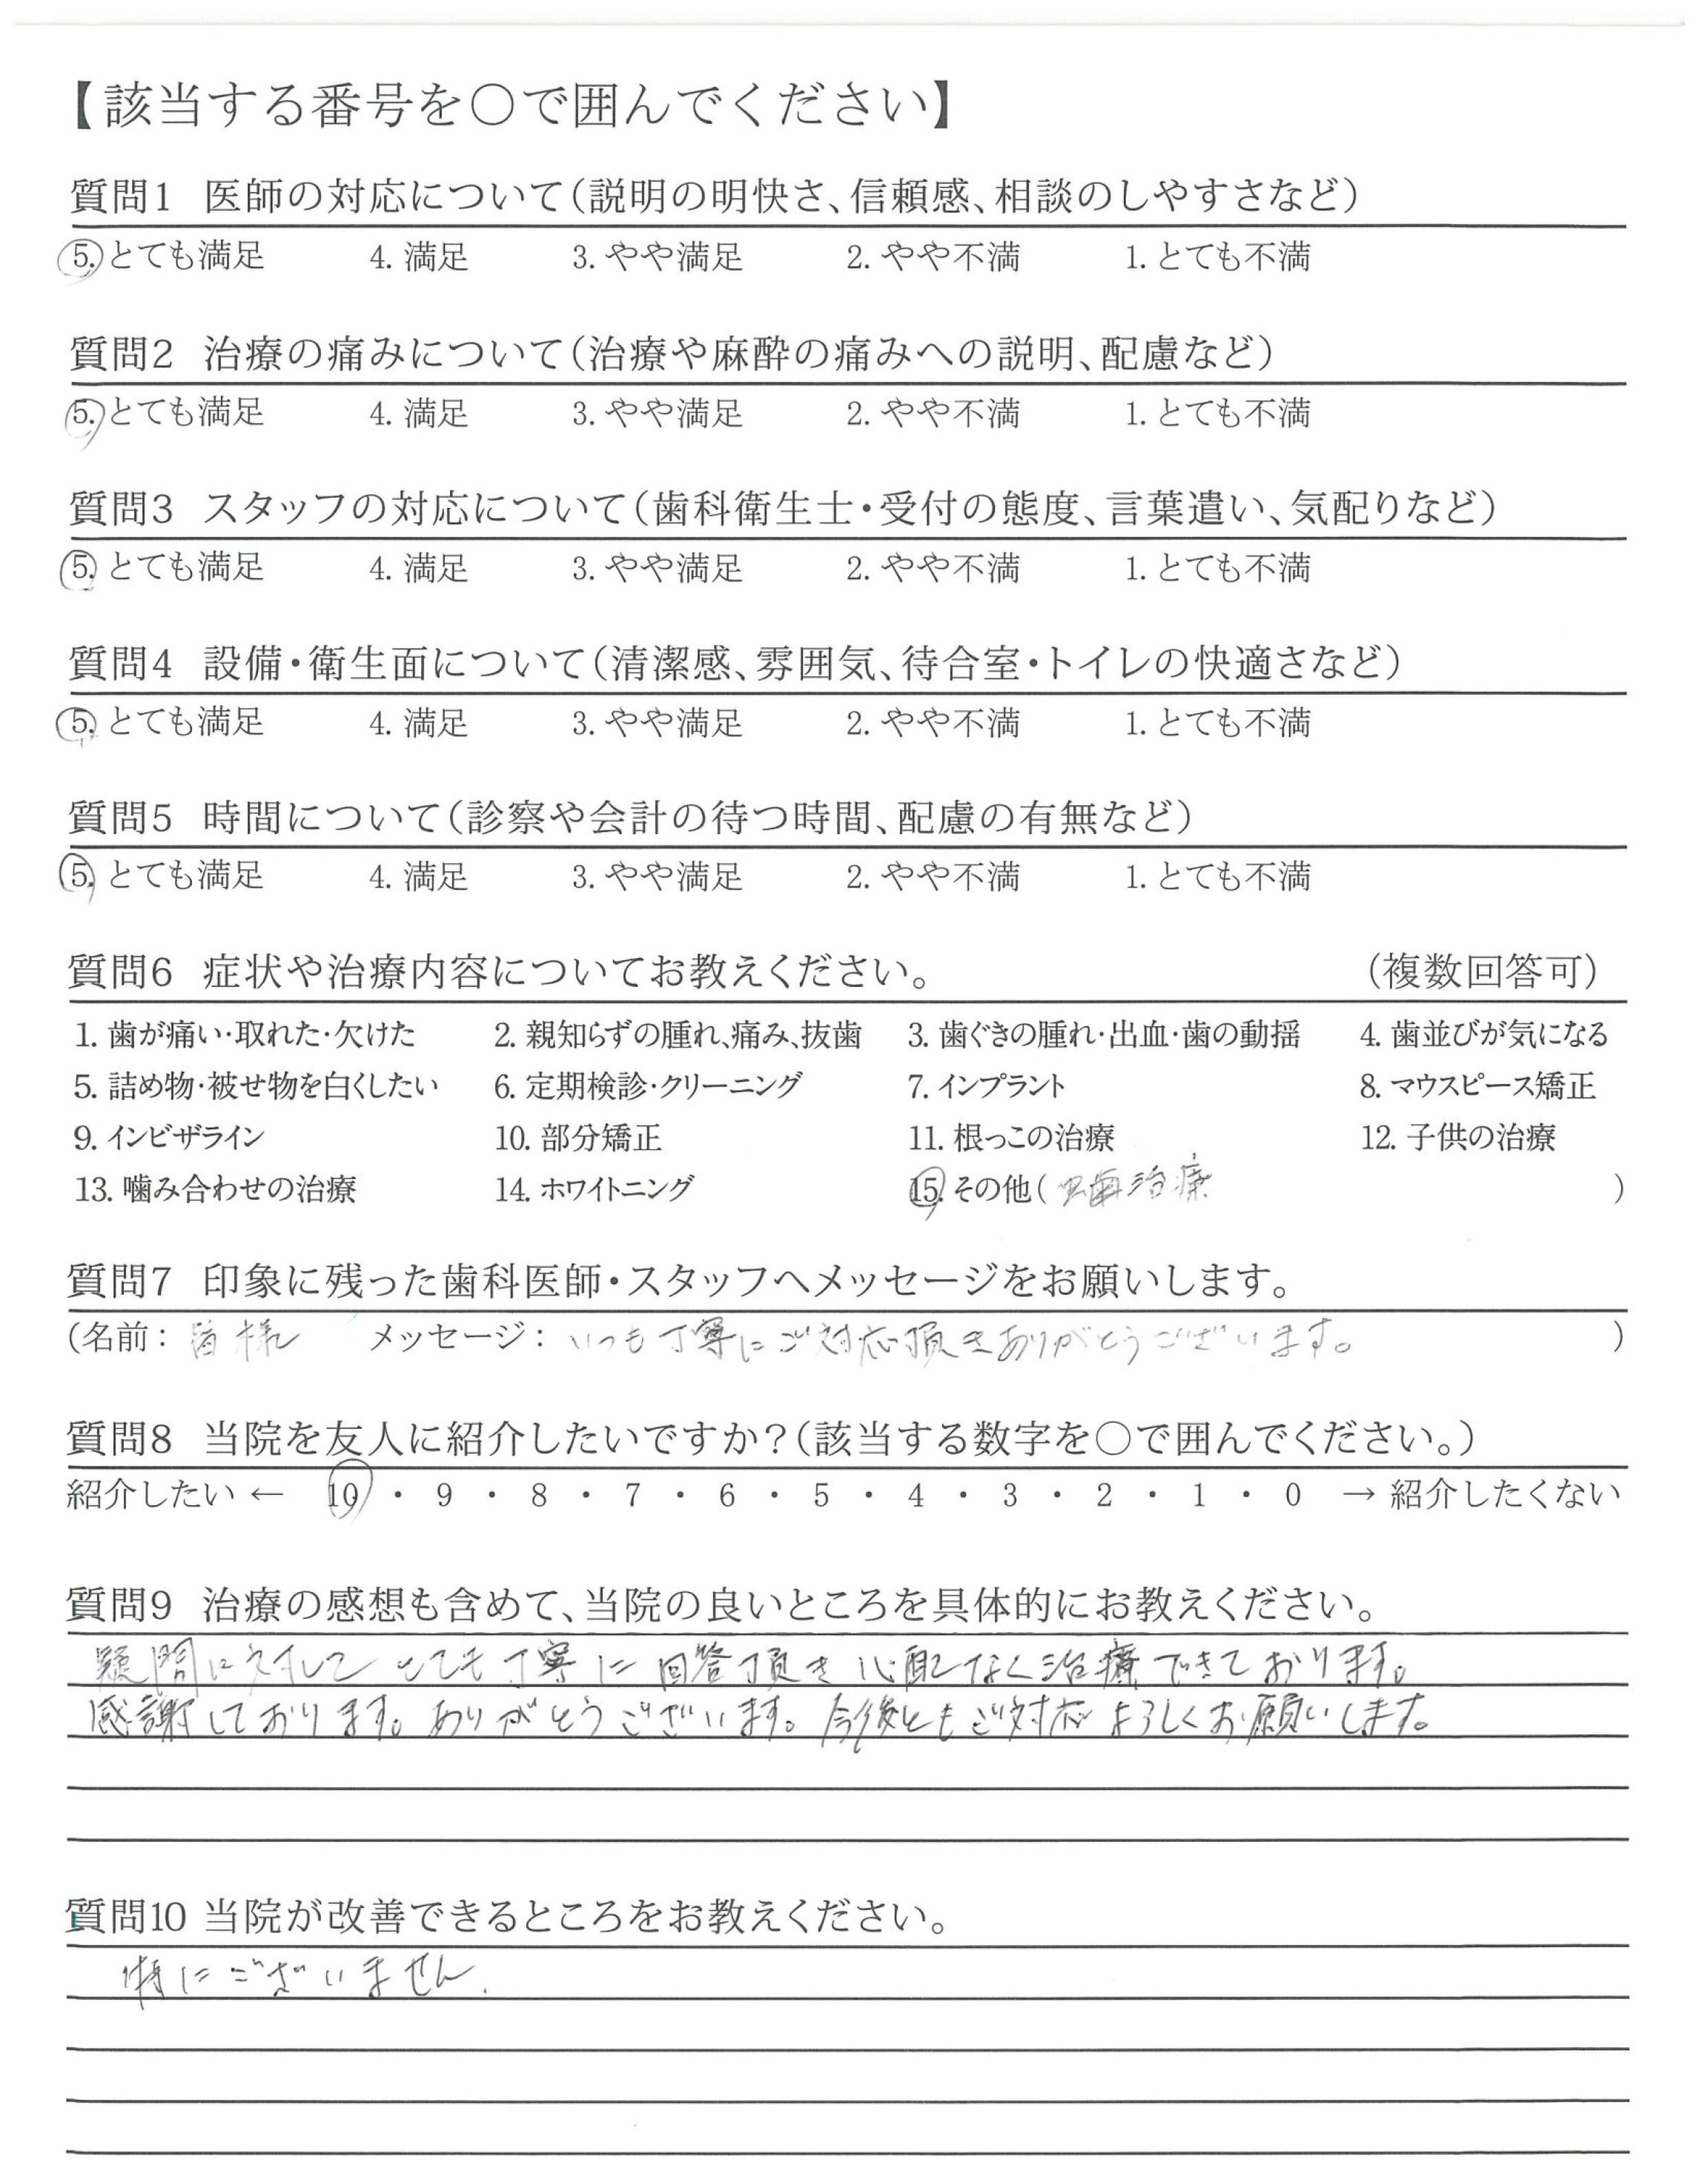 【該当する番号を○で囲んでください】
質問1 医師の対応について(説明の明快さ、信頼感、相談のしやすさなど)
5. とても満足 4. 満足 3. やや満足 2. やや不満 1. とても不満
質問2 治療の痛みについて(治療や麻酔の痛みへの説明、配慮など)
5. とても満足 4. 満足 3. やや満足 2. やや不満 1. とても不満
質問3 スタッフの対応について(歯科衛生士・受付の態度、言葉遣い、気配りなど)
5. とても満足 4. 満足 3. やや満足 2. やや不満 1. とても不満
質問4 設備・衛生面について(清潔感、雰囲気、待合室・トイレの快適さなど)
5. とても満足 4. 満足 3. やや満足 2. やや不満 1. とても不満
質問5 時間について(診察や会計の待つ時間、配慮の有無など)
5. とても満足 4. 満足 3. やや満足 2. やや不満 1. とても不満
質問6 症状や治療内容についてお教えください。 (複数回答可)
1. 歯が痛い・取れた・欠けた 2. 親知らずの腫れ、痛み、抜歯 3. 歯ぐきの腫れ・出血・歯の動揺 4. 歯並びが気になる
5. 詰め物・被せ物を白くしたい 6. 定期検診・クリーニング 7. インプラント 8. マウスピース矯正
9. インビザライン 10. 部分矯正 11. 根っこの治療 12. 子供の治療
13. 噛み合わせの治療 14. ホワイトニング 15. その他( 虫歯治療 )
質問7 印象に残った歯科医師・スタッフへメッセージをお願いします。
(名前: 皆様 メッセージ: いつも丁寧にご対応頂きありがとうございます。 )
質問8 当院を友人に紹介したいですか?(該当する数字を○で囲んでください。)
紹介したい ← 10 ・ 9 ・ 8 ・ 7 ・ 6 ・ 5 ・ 4 ・ 3 ・ 2 ・ 1 ・ 0 → 紹介したくない
質問9 治療の感想も含めて、当院の良いところを具体的にお教えください。
疑問に対して とても丁寧に回答頂き 心配なく治療できております。
感謝しております。ありがとうございます。今後ともご対応よろしくお願いします。
質問10 当院が改善できるところをお教えください。
特にございません.